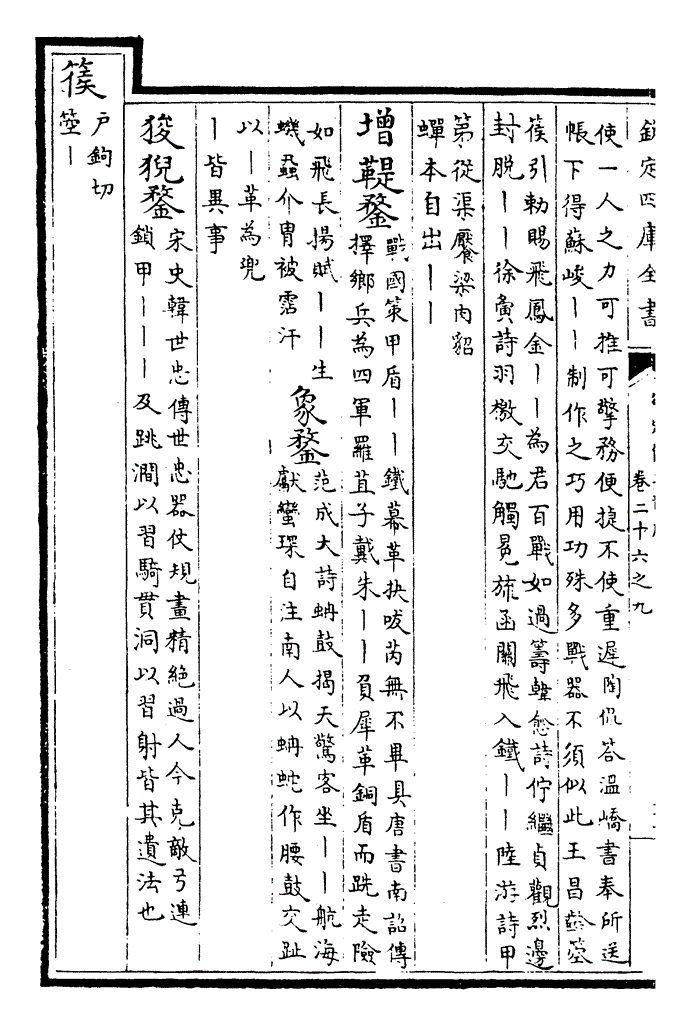 欽定四庫全書
卷二十六之九
使一人之力可推可擎務便捷不使重遲陶侃答温嶠書奉所送
帳下得蘇峻丨丨制作之巧用功殊多戰器不須似此王昌齡箜
篌引勅賜飛鳳金丨丨為君百戰如過籌韓愈詩佇繼貞觀烈邊
封脱丨丨徐夤詩羽檄交馳觸冕旒函關飛入鐵丨丨陸游詩甲
第從渠饜梁肉貂
蟬本自出丨丨
增鞮鍪
戰國策甲盾丨丨鐵幕革抉㕹芮無不畢具唐書南詔傳
擇鄉兵為四軍羅苴子戴朱丨丨負犀革銅盾而跣走險
如飛長揚賦丨丨生
蟣蝨介胄被霑汗
象鍪
范成大詩蚺鼓揭天驚客坐丨丨航海
獻蠻琛自注南人以蚺蛇作腰鼓交趾
以丨革為兜
丨皆異事
狻猊鍪
宋史韓世忠傳世忠器仗規畫精絶過人今克敵弓連
鎖甲丨丨丨及跳澗以習騎貫洞以習射皆其遺法也
篌
户鉤切
箜丨